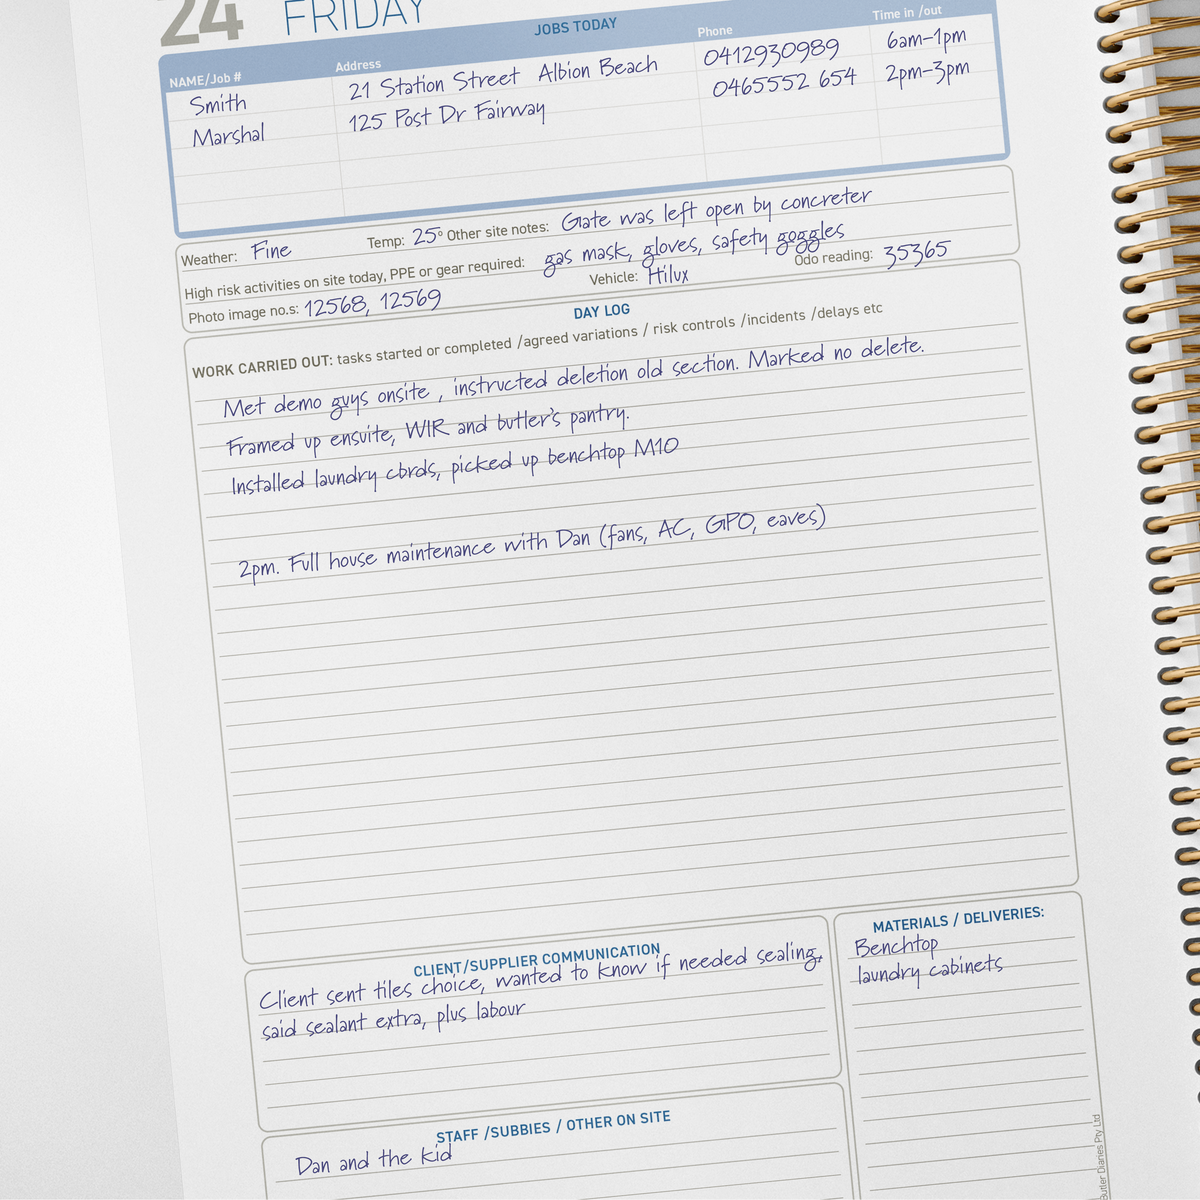 24 FRIDAY
JOBS TODAY
NAME/Job # Address Phone Time in /out
Smith 21 Station Street Albion Beach 0412930989 6am-1pm
Marshal 125 Post Dr Fairway 0465552 654 2pm-3pm
Weather: Fine Temp: 25° Other site notes: Gate was left open by concreter
High risk activities on site today, PPE or gear required: gas mask, gloves, safety goggles
Photo image no.s: 12568, 12569 Vehicle: Hilux Odo reading: 35365
DAY LOG
WORK CARRIED OUT: tasks started or completed /agreed variations / risk controls /incidents /delays etc
Met demo guys onsite , instructed deletion old section. Marked no delete.
Framed up ensuite, WIR and butler's pantry.
Installed laundry cbrds, picked up benchtop M10
2pm. Full house maintenance with Dan (fans, AC, GPO, eaves)
CLIENT/SUPPLIER COMMUNICATION
Client sent tiles choice, wanted to know if needed sealing.
said sealant extra, plus labour
MATERIALS / DELIVERIES:
Benchtop
laundry cabinets
STAFF /SUBBIES / OTHER ON SITE
Dan and the kid
Butler Diaries Pty Ltd